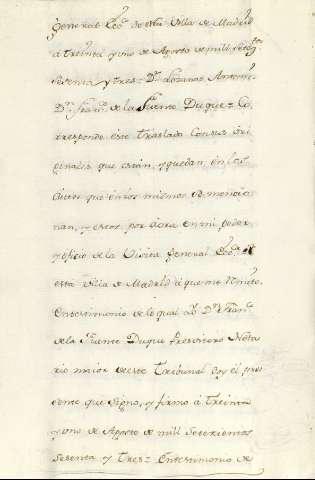 General Ecc.ca de esta Villa de Madrid
á treinta y uno de Agosto de mill setez.tos
Sesenta y tres= D.n Lozano Antemi:
D.n Fran.co de la Fuente Duque= Co
rresponde este traslado con sus ori
ginales que estan, y quedan, en los
Autos que en los mismos se mencio
nan, y estos por aora en mi poder
y oficio de la Visita general Ecc.ca de
esta Villa de Madrid á que me remito,
En testimonio de lo qual Yo D.n Fran.co
de la Fuente Duque Presvitero Nota
rio maior de este Tribunal doy el pre
sente que signo, y firmo á Treinta
y uno de Agosto de mill setecientos
Sesenta y tres= En testimonio de